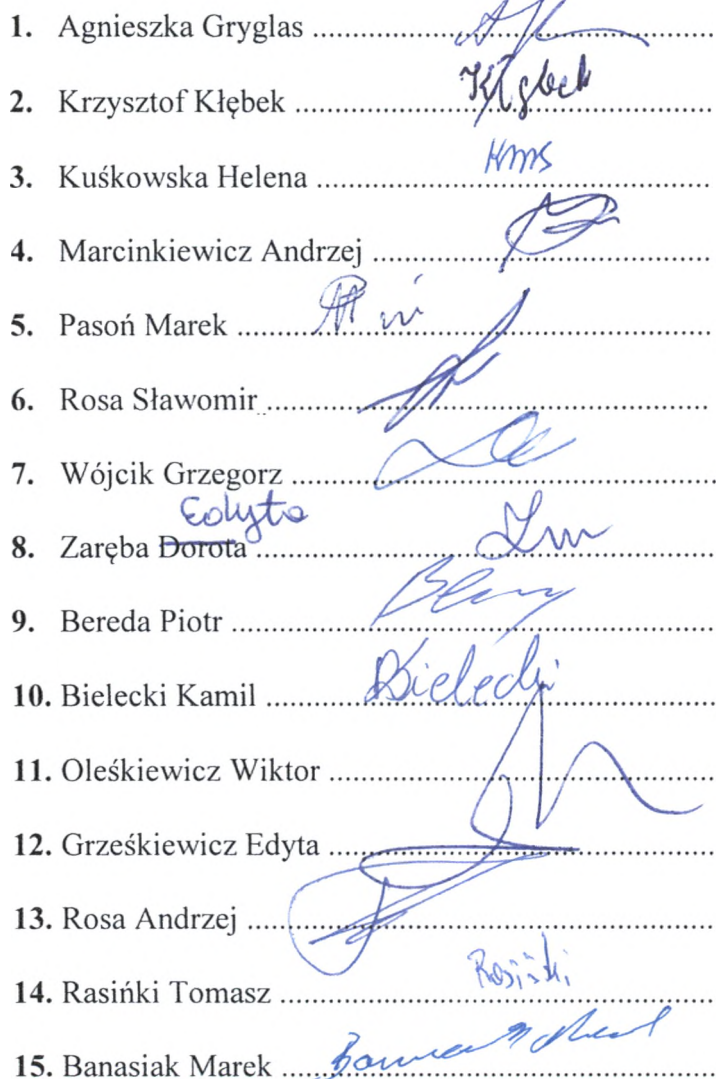 1. Agnieszka Gryglas ..........................
2. Krzysztof Kłębek .......................... Kłębek
3. Kuśkowska Helena ..........................
4. Marcinkiewicz Andrzej ..........................
5. Pasoń Marek ..........................
6. Rosa Sławomir ..........................
7. Wójcik Grzegorz ..........................
Edyta
8. Zaręba Dorota ..........................
9. Bereda Piotr ..........................
10. Bielecki Kamil .......................... Bielecki
11. Oleśkiewicz Wiktor ..........................
12. Grześkiewicz Edyta ..........................
13. Rosa Andrzej ..........................
14. Rasińki Tomasz .......................... Rasiński
15. Banasiak Marek ..........................